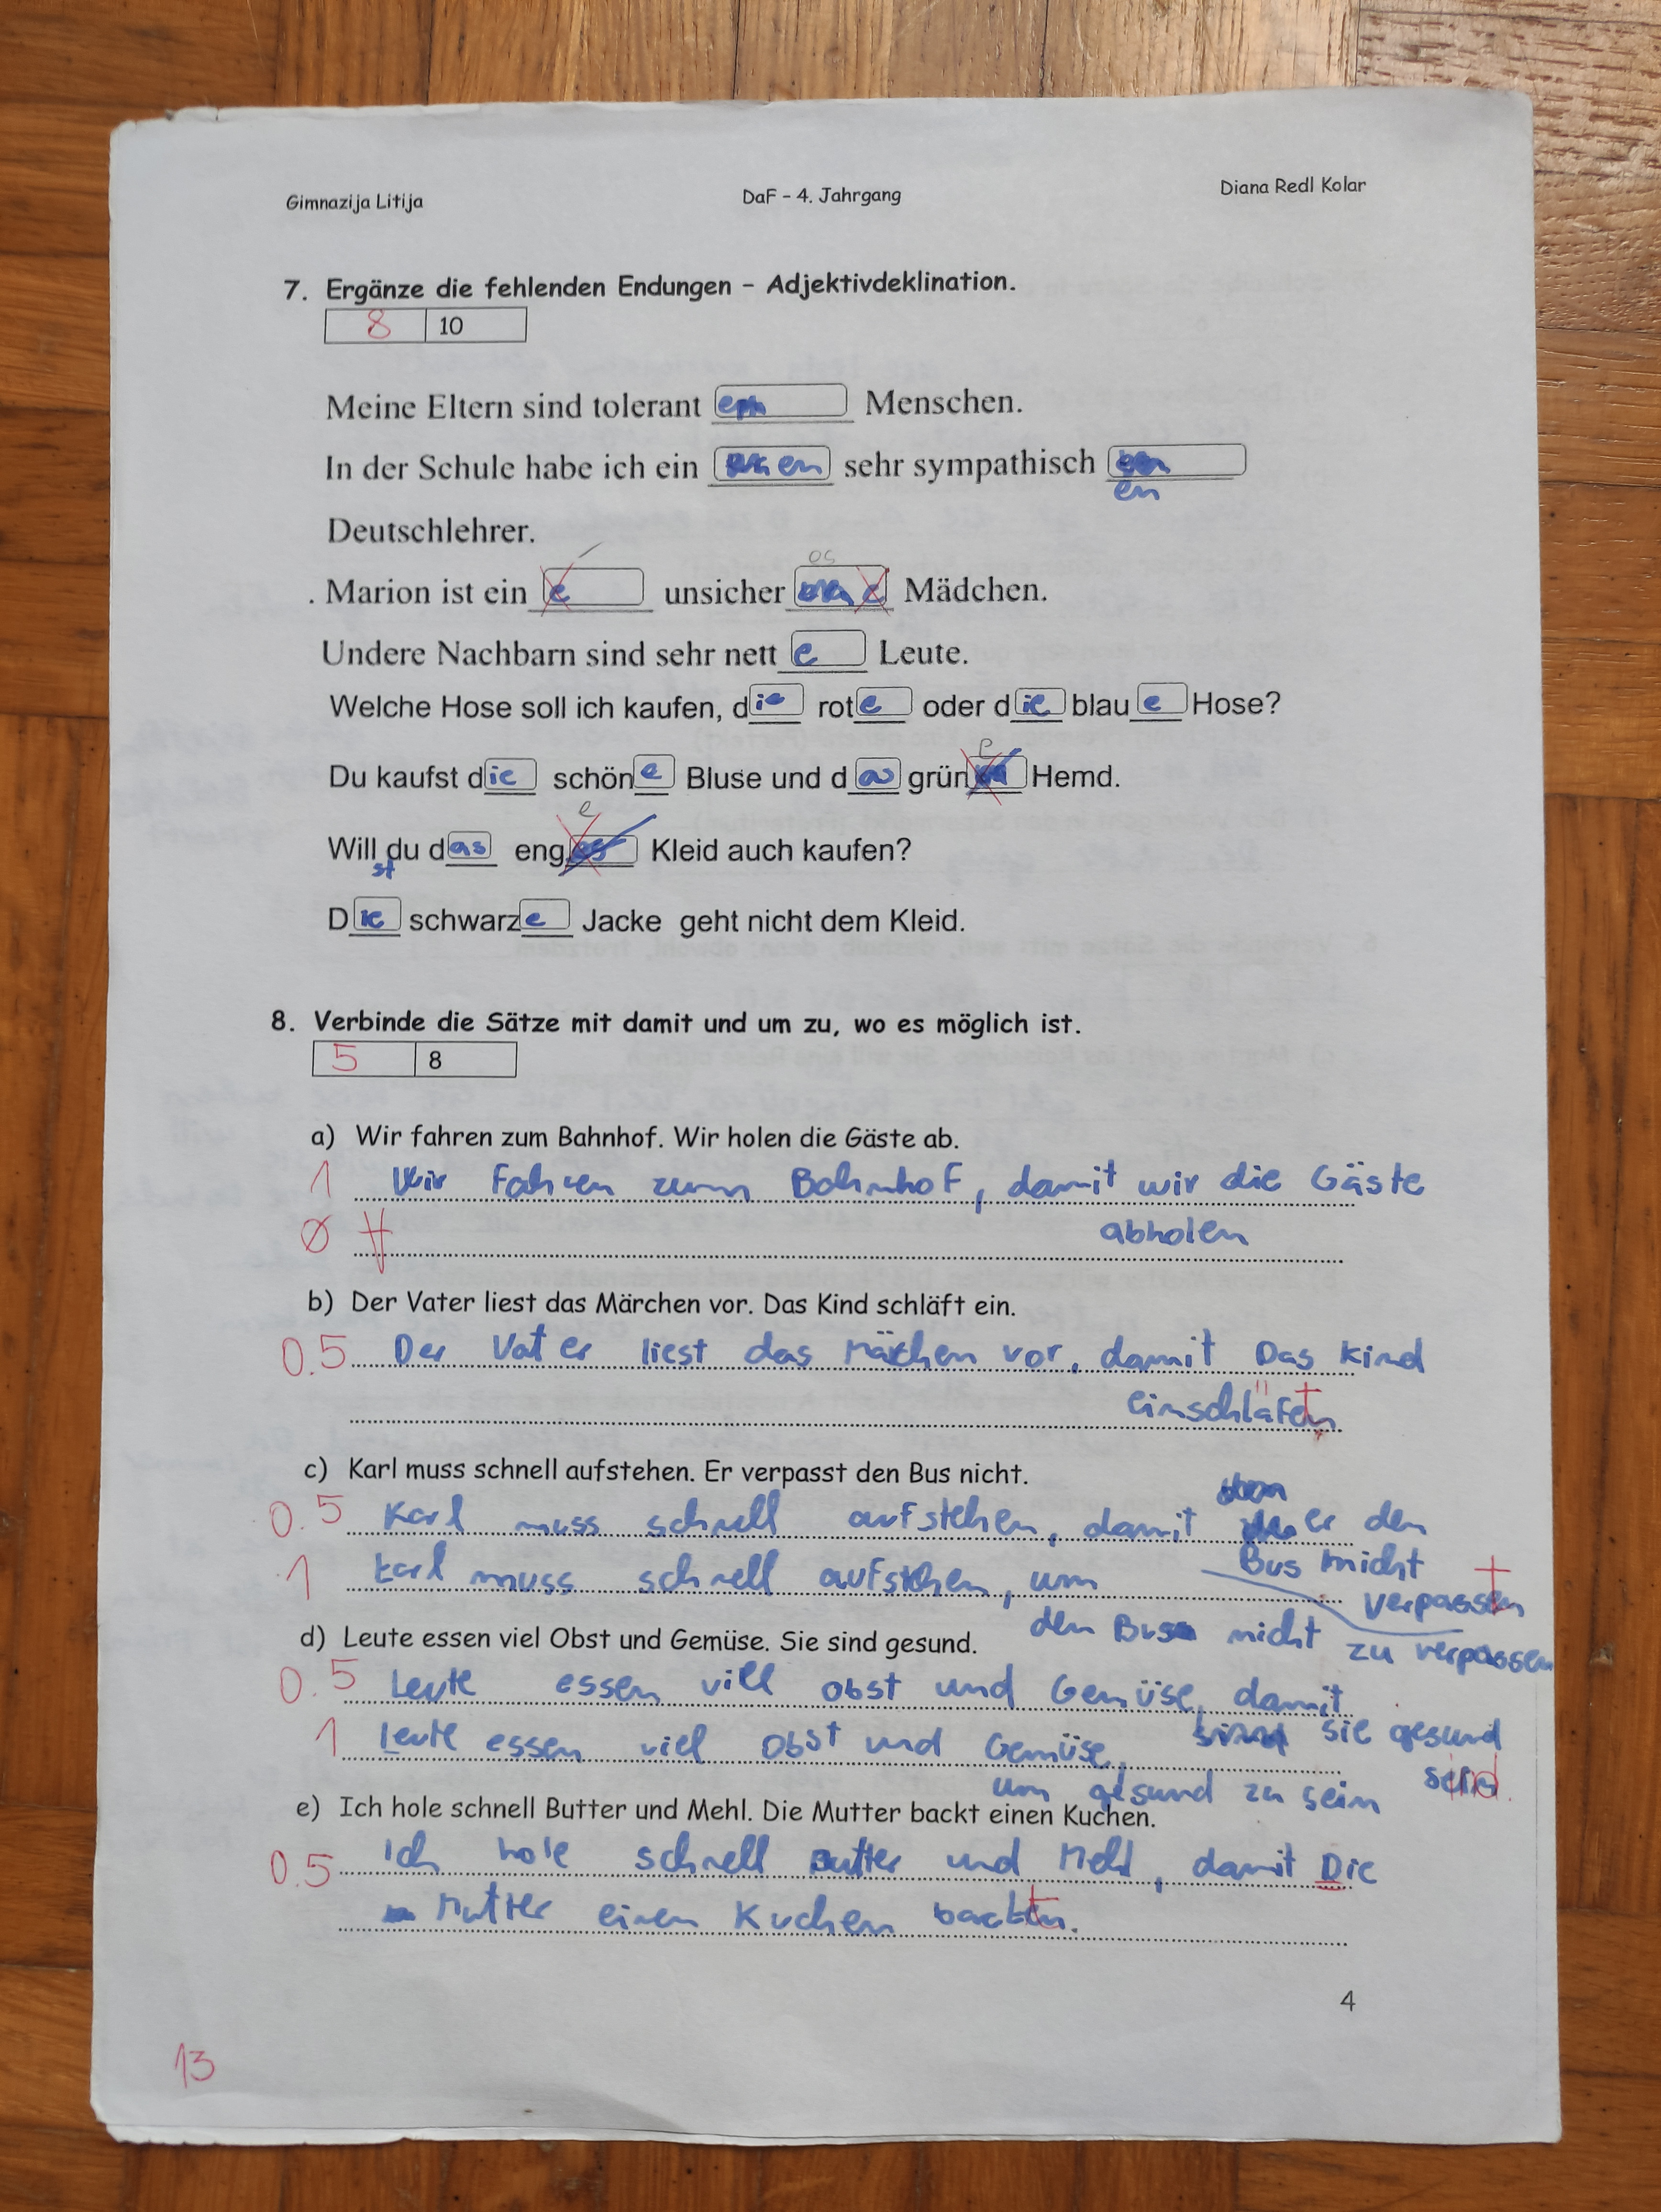 Gimnazija Litija DaF – 4. Jahrgang Diana Redl Kolar
7. Ergänze die fehlenden Endungen – Adjektivdeklination.
8 10
Meine Eltern sind tolerant e Menschen.
In der Schule habe ich ein en sehr sympathisch
en
Deutschlehrer.
/ es
. Marion ist ein e unsicher e Mädchen.
Undere Nachbarn sind sehr nett e Leute.
Welche Hose soll ich kaufen, die rote oder die blaue Hose?
e
Du kaufst die schöne Bluse und das grün Hemd.
e
Will du das enges Kleid auch kaufen?
st
Die schwarze Jacke geht nicht dem Kleid.
8. Verbinde die Sätze mit damit und um zu, wo es möglich ist.
5 8
a) Wir fahren zum Bahnhof. Wir holen die Gäste ab.
1 Wir fahren zum Bahnhof, damit wir die Gäste
0 abholen
b) Der Vater liest das Märchen vor. Das Kind schläft ein.
0.5 Der Vater liest das Mächen vor, damit Das Kind
einschläfen t
c) Karl muss schnell aufstehen. Er verpasst den Bus nicht.
0.5 Karl muss schnell aufstehen, damit er den
Bus nicht
verpassen t
1 Karl muss schnell aufstehen, um
den Bus nicht zu verpassen
d) Leute essen viel Obst und Gemüse. Sie sind gesund.
0.5 Leute essen viel obst und Gemüse, damit
sie gesund
sein ind.
1 Leute essen viel obst und Gemüse,
um gesund zu sein
e) Ich hole schnell Butter und Mehl. Die Mutter backt einen Kuchen.
0.5 Ich hole schnell Butter und Mehl, damit Die
Mutter einen Kuchen backen t.
4
13